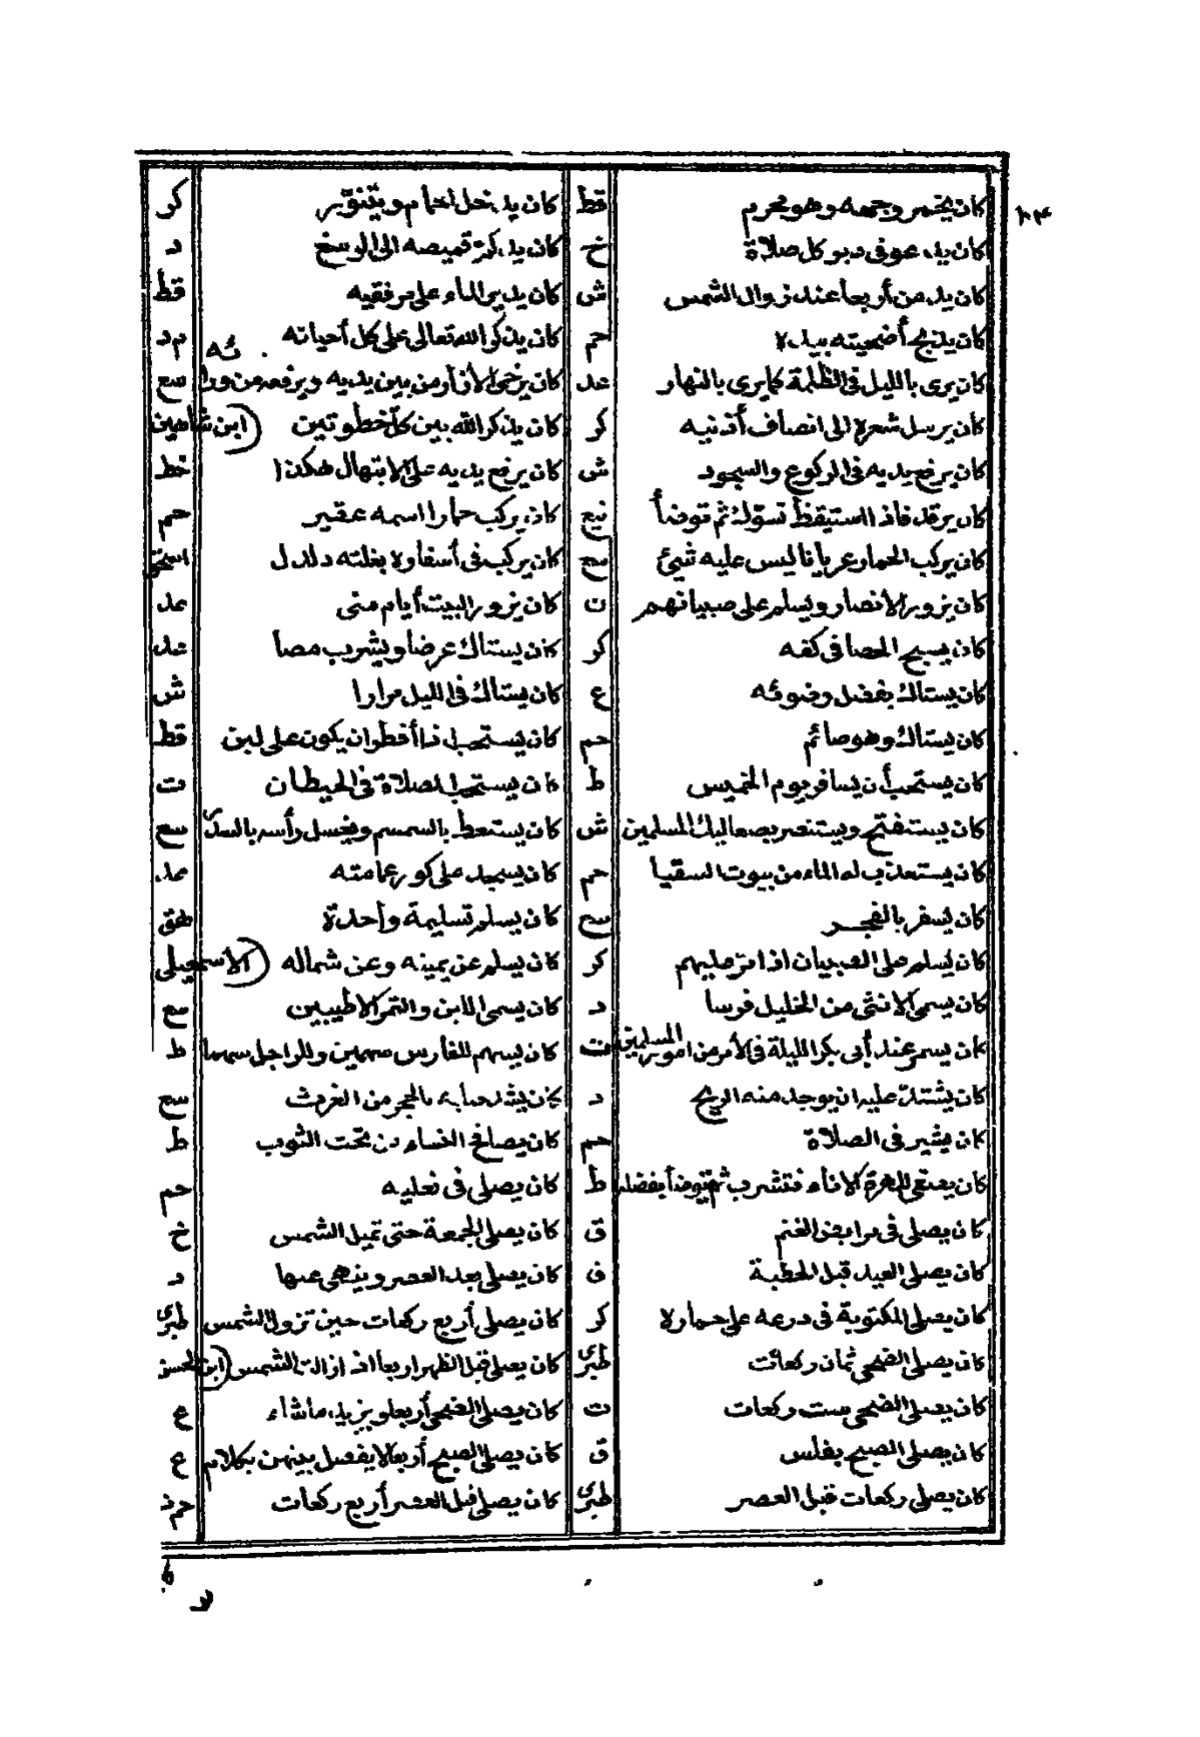 كان يخمر وجهه وهو محرم قط كان يدخل الحمام ويتنوّر كر
كان يدعو فى دبر كل صلاة خ كان يد كمّ قميصه الى الرسغ د
كان يدمن أربعا عند زوال الشمس ش كان يدير الماء على مرفقيه قط
كان يذبح أضحيته بيده حم كان يذكر الله تعالى على كل أحيانه م د
كان يرى بالليل فى الظلمة كما يرى بالنهار عد كان يرخى الازار من بين يديه ويرفعه من ورائه سع
كان يرسل شعره الى انصاف أذنيه كر كان يذكر الله بين كل خطوتين (ابن شاهين
كان يرفع يديه فى الركوع والسجود ش كان يرفع يديه على الابتهال هكذا خط
كان يرقد فاذا استيقظ تسوّك ثم توضأ كان يركب حمارا اسمه عفير حم
كان يركب الحمار عريانا ليس عليه شيئ سع كان يركب فى أسفاره بغلته دلدل
كان يزور الانصار ويسلم على صبيانهم ن كان يزور البيت أيام منى عد
كان يسبح الحصا فى كفه كر كان يستاك عرضا ويشرب مصا عد
كان يستاك بفضل وضوئه ع كان يستاك فى الليل مرارا ش
كان يستاك وهو صائم حم كان يستحب اذا أفطر ان يكون على لبن قط
كان يستحب أن يسافر يوم الخميس ط كان يستحب الصلاة فى الحيطان ت
كان يستفتح ويستنصر بصعاليك المسلمين ش كان يستعط بالسمسم ويغسل رأسه بالسدر سع
كان يستعذب له الماء من بيوت السقيا حم كان يسجد على كور عمامته عد
كان يسفر بالفجر سع كان يسلم تسليمة واحدة هق
كان يسلم على الصبيان اذا مر عليهم كر كان يسلم عن يمينه وعن شماله (الاسمعيلى
كان يسمى الانثى من الخيل فرسا د كان يسمى اللبن والتمر الاطيبين سع
كان يسمر عند أبى بكر الليلة فى الأمر من امور المسلمين ت كان يسهم للفارس سهمين وللراجل سهما ط
كان يشتد عليه ان يوجد منه الريح د كان يشد صلبه بالحجر من الغرث سع
كان يشير فى الصلاة حم كان يصافح النساء من تحت الثوب ط
كان يصغى للهرة الاناء فتشرب ثم يتوضأ بفضله ط كان يصلى فى نعليه حم
كان يصلى فى مرابض الغنم ق كان يصلى الجمعة حتى تميل الشمس خ
كان يصلى العيد قبل الخطبة ق كان يصلى بعد العصر وينهى عنها د
كان يصلى المكتوبة فى درعه على حماره كر كان يصلى أربع ركعات حين تزول الشمس طبرى
كان يصلى الضحى ثمان ركعات طبرى كان يصلى قبل الظهر اربعا اذا زالت الشمس (ابن الحسن
كان يصلى الضحى ست ركعات ت كان يصلى الضحى أربعا ويزيد ما شاء ع
كان يصلى الصبح بغلس ق كان يصلى الصبح أربعا لا يفصل بينهن بكلام ع
كان يصلى ركعات قبل العصر طبرى كان يصلى قبل العصر أربع ركعات